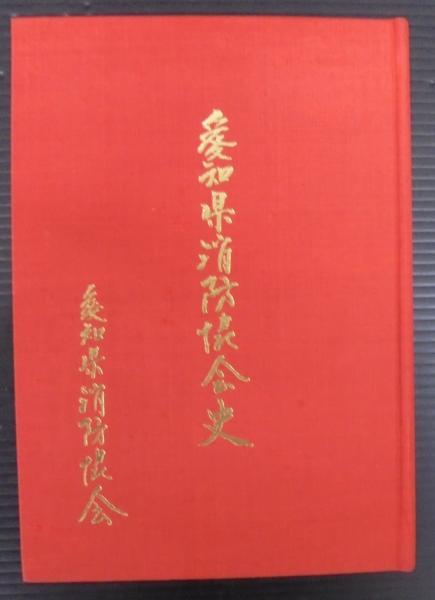 愛知県消防協会史
愛知県消防協会